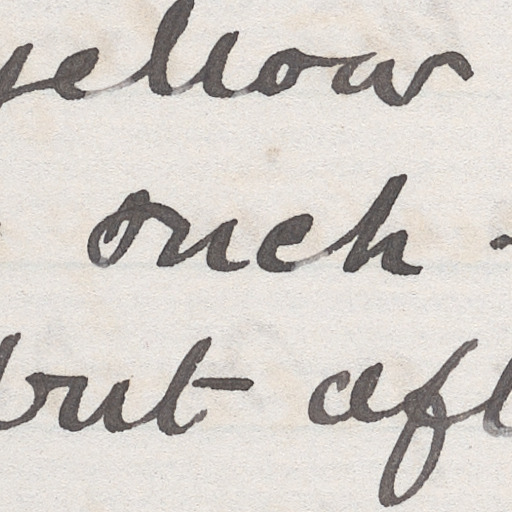 yellow
such -
but aft